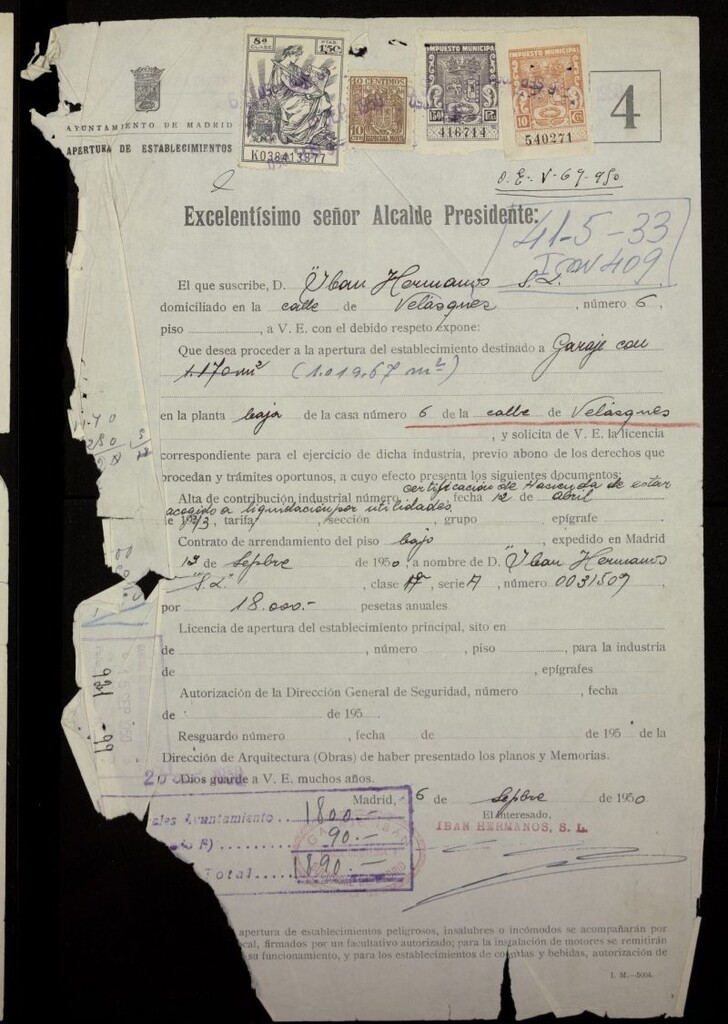 8ª CLASE
PTAS. 1'50
K038413877
10 CENTIMOS
ESPECIAL MOVIL
IMPUESTO MUNICIPAL
50
416714
IMPUESTO MUNICIPAL
10 Cs
540271
4
AYUNTAMIENTO DE MADRID
APERTURA DE ESTABLECIMIENTOS
O. E. V-69-950
Excelentísimo señor Alcalde Presidente:
41-5-33
409
El que suscribe, D. "Iban Hermanos S.L.
domiciliado en la calle de Velásques, número 6,
piso, a V. E. con el debido respeto expone:
Que desea proceder a la apertura del establecimiento destinado a Garaje con
1.170 m² (1.019,67 m²)
en la planta baja de la casa número 6 de la calle de Velásques
, y solicita de V. E. la licencia
correspondiente para el ejercicio de dicha industria, previo abono de los derechos que
procedan y trámites oportunos, a cuyo efecto presenta los siguientes documentos:
certificación de Hacienda de estar
Alta de contribución industrial número, fecha 12 de abril
acogido a liquidación por utilidades
tarifa, sección, grupo, epígrafe
Contrato de arrendamiento del piso bajo, expedido en Madrid
13 de Sepbre de 1950, a nombre de D. "Iban Hermanos
S.L.", clase 1ª, serie A, número 0031509
por 18.000.- pesetas anuales.
Licencia de apertura del establecimiento principal, sito en
de, número, piso, para la industria
de, epígrafes
Autorización de la Dirección General de Seguridad, número, fecha
de de 195
Resguardo número, fecha de de 195 de la
Dirección de Arquitectura (Obras) de haber presentado los planos y Memorias.
Dios guarde a V. E. muchos años.
Madrid, 6 de Sepbre de 1950
El interesado,
IBAN HERMANOS, S. L.
ales Ayuntamiento 1800.-
90.-
Total 1890.-
921 - 99
apertura de establecimientos peligrosos, insalubres o incómodos se acompañarán por
cal, firmados por un facultativo autorizado; para la instalación de motores se remitirán
su funcionamiento, y para los establecimientos de comidas y bebidas, autorización de
I. M.—5004.